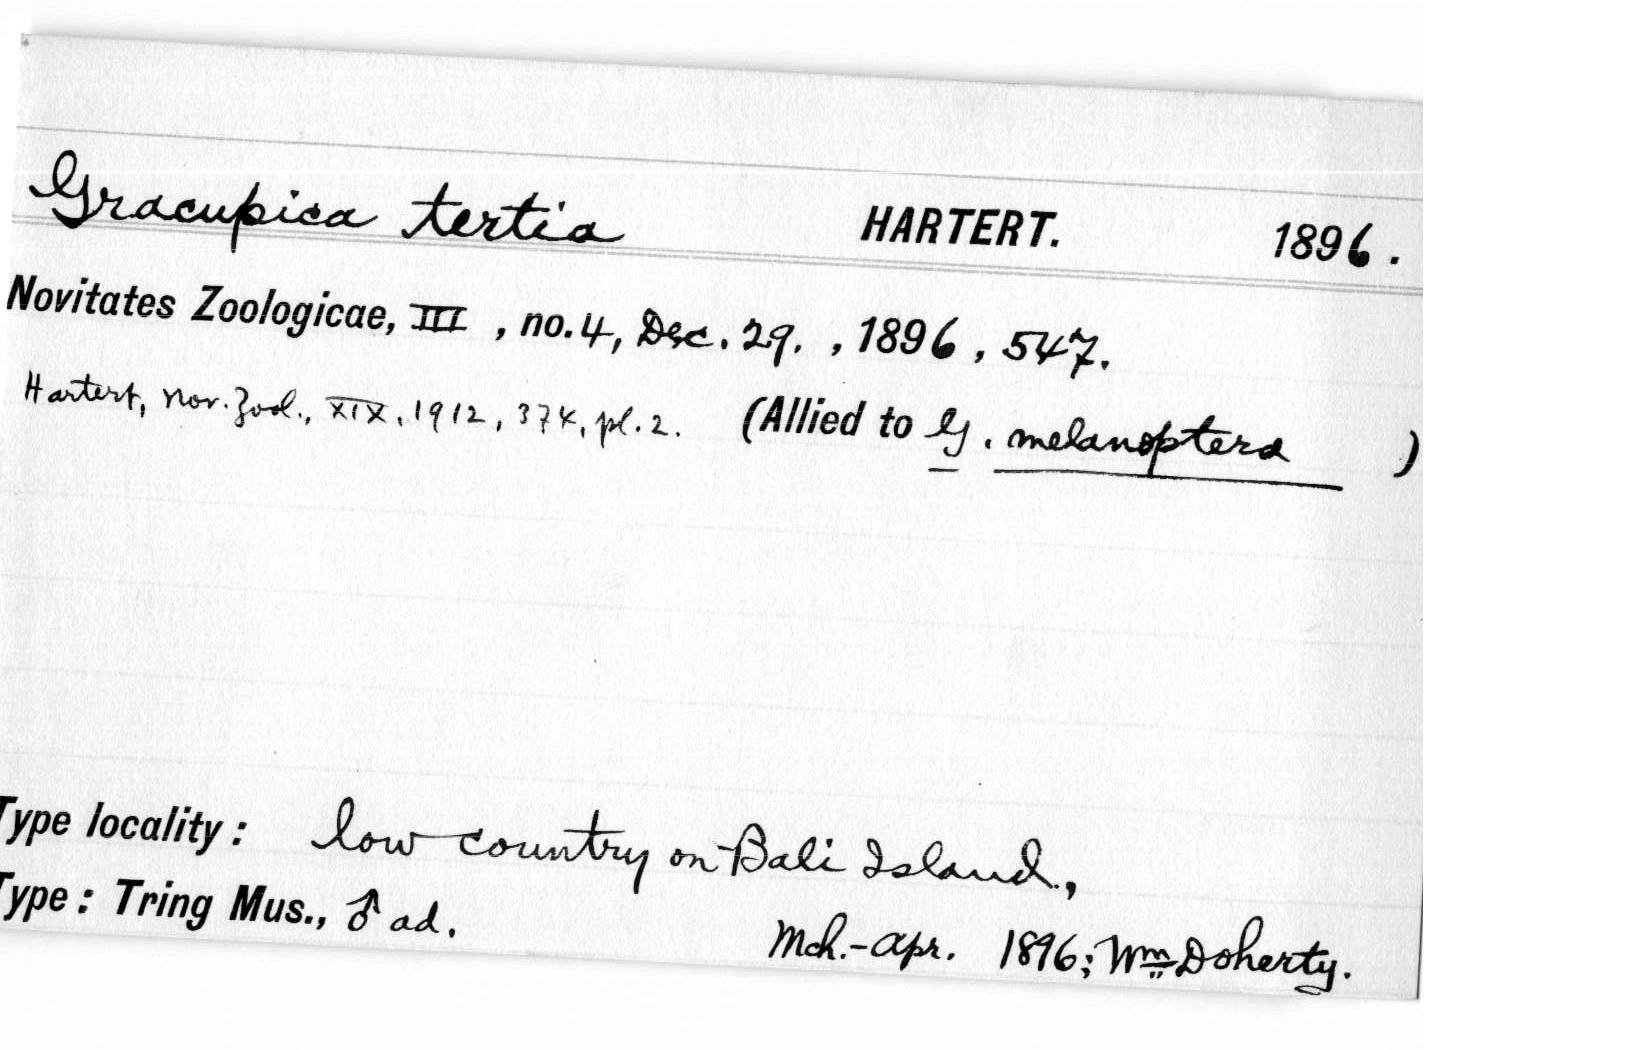 Gracupica tertia HARTERT. 1896.
Novitates Zoologicae, III, no. 4, Dec. 29., 1896, 547.
Hartert, Nov. Zool., XIX, 1912, 374, pl. 2. (Allied to G. melanoptera )
Type locality: low country on Bali Island,
Type: Tring Mus., ♂ ad. Mch.-Apr. 1896; Wm Doherty.